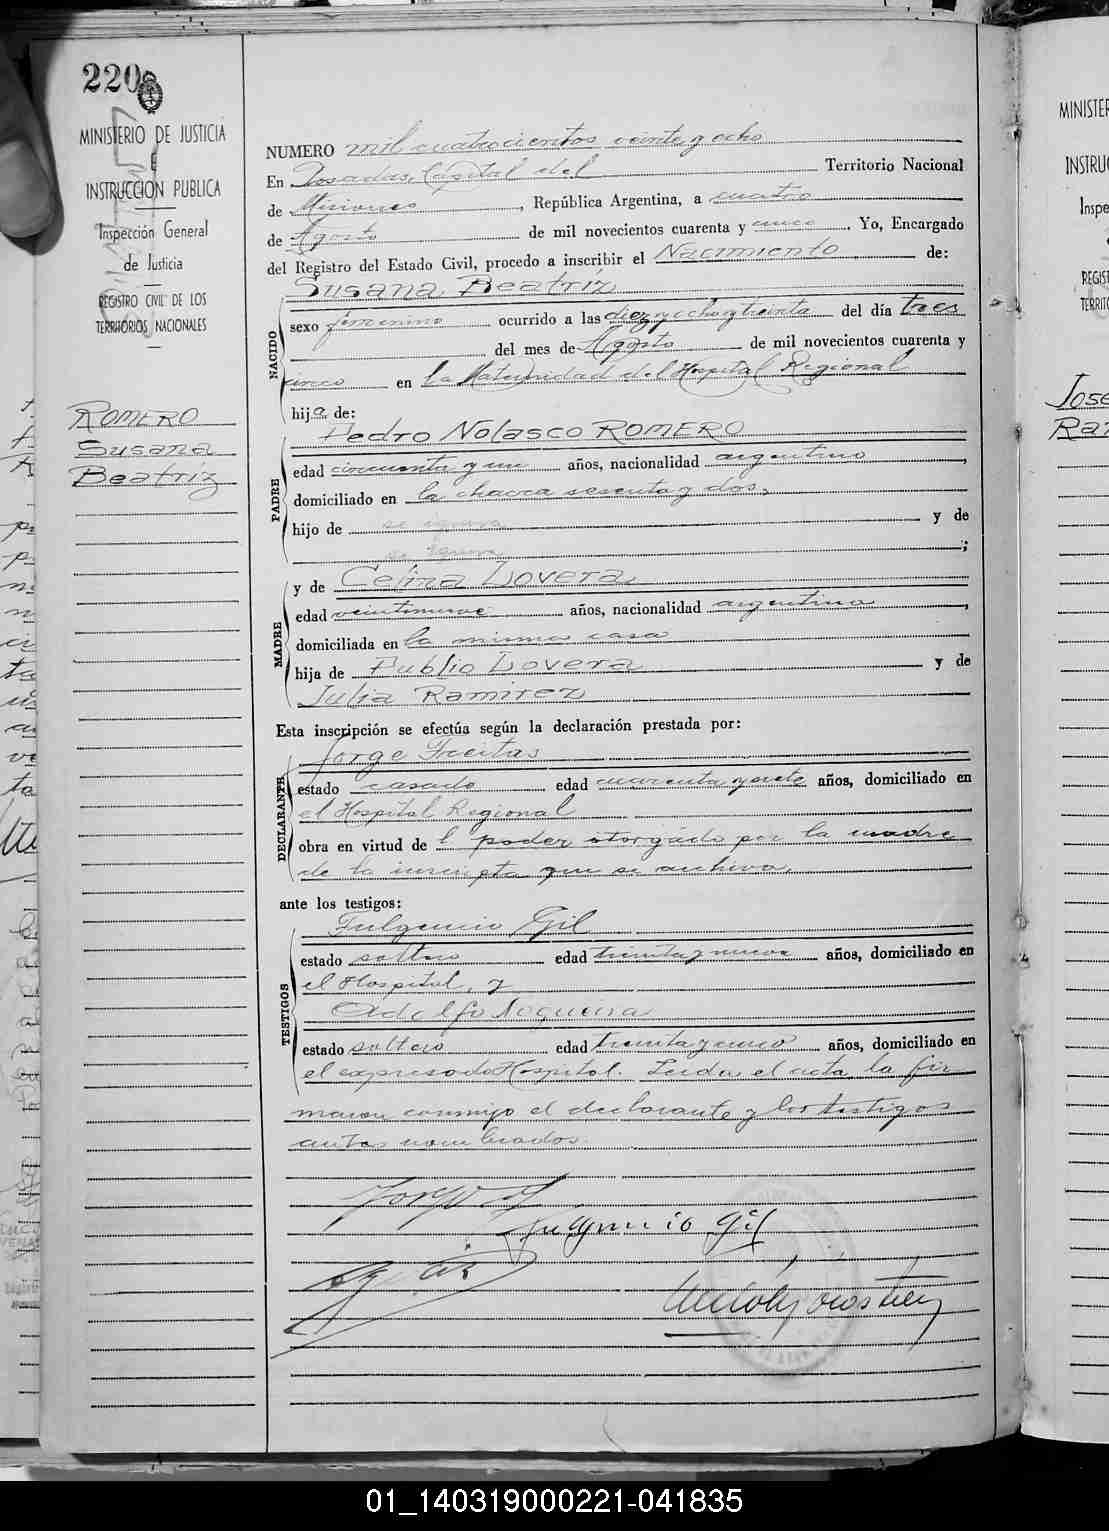 220
MINISTERIO DE JUSTICIA
E
INSTRUCCION PUBLICA
Inspección General
de Justicia
REGISTRO CIVIL DE LOS
TERRITORIOS NACIONALES
ROMERO
Susana
Beatriz
NUMERO mil cuatrocientos veinte y ocho
En Posadas, Capital del Territorio Nacional
de Misiones, República Argentina, a cuatro
de Agosto de mil novecientos cuarenta y cinco. Yo, Encargado
del Registro del Estado Civil, procedo a inscribir el Nacimiento de:
NACIDO
Susana Beatriz
sexo femenino ocurrido a las diez y ocho y treinta del día tres
del mes de Agosto de mil novecientos cuarenta y
cinco en La Maternidad del Hospital Regional
hija de:
PADRE
Pedro Nolasco ROMERO
edad cincuenta y un años, nacionalidad argentino,
domiciliado en la chacra sesenta y dos,
hijo de se ignora y de
se ignora;
MADRE
y de Celina Lovera
edad veintinueve años, nacionalidad argentina,
domiciliada en la misma casa
hija de Publio Lovera y de
Julia Ramirez
Esta inscripción se efectúa según la declaración prestada por:
DECLARANTE
Jorge Freitas
estado casado edad cuarenta y siete años, domiciliado en
el Hospital Regional
obra en virtud de l poder otorgado por la madre
de la inscripta que se archiva.
ante los testigos:
TESTIGOS
Fulgencio Gil
estado soltero edad treinta y nueve años, domiciliado en
el Hospital, y
Adolfo Nogueira
estado soltero edad treinta y cinco años, domiciliado en
el expresado Hospital. Leida el acta la fir
maron conmigo el declarante y los testigos
antes nombrados.
Fulgencio Gil
MINISTER
INSTRUC
Inspe
REGIS
TERRITO
Jose
Ra
01_140319000221-041835